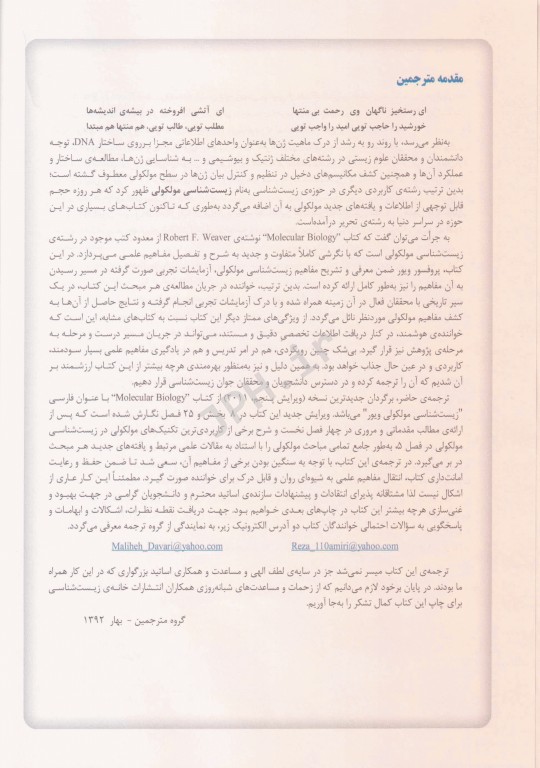 مقدمه مترجمین
ای رستخیز ناگهان وی رحمت بی منتها ای آتشی افروخته در بیشه‌ی اندیشه‌ها
خورشید را حاجب تویی امید را واجب تویی مطلب تویی، طالب تویی، هم منتها هم مبتدا
به‌نظر می‌رسد، با روند رو به رشد از درک ماهیت ژن‌ها به‌عنوان واحدهای اطلاعاتی مجزا برروی ساختار DNA، توجه
دانشمندان و محققان علوم زیستی در رشته‌های مختلف ژنتیک و بیوشیمی و ... به شناسایی ژن‌ها، مطالعه‌ی ساختار و
عملکرد آن‌ها و همچنین کشف مکانیسم‌های دخیل در تنظیم و کنترل بیان ژن‌ها در سطح مولکولی معطوف گشته است؛
بدین ترتیب رشته‌ی کاربردی دیگری در حوزه‌ی زیست‌شناسی به‌نام زیست‌شناسی مولکولی ظهور کرد که هر روزه حجم
قابل توجهی از اطلاعات و یافته‌های جدید مولکولی به آن اضافه می‌گردد به‌طوری که تاکنون کتاب‌های بسیاری در این
حوزه در سراسر دنیا به رشته‌ی تحریر درآمده‌است.
به جرأت می‌توان گفت که کتاب "Molecular Biology" نوشته‌ی Robert F. Weaver از معدود کتب موجود در رشته‌ی
زیست‌شناسی مولکولی است که با نگرشی کاملاً متفاوت و جدید به شرح و تفصیل مفاهیم علمی می‌پردازد. در این
کتاب، پروفسور ویور ضمن معرفی و تشریح مفاهیم زیست‌شناسی مولکولی، آزمایشات تجربی صورت گرفته در مسیر رسیدن
به آن مفاهیم را نیز به‌طور کامل ارائه کرده است. بدین ترتیب، خواننده در جریان مطالعه‌ی هر مبحث این کتاب، در یک
سیر تاریخی با محققان فعال در آن زمینه همراه شده و با درک آزمایشات تجربی انجام گرفته و نتایج حاصل از آن‌ها به
کشف مفاهیم مولکولی موردنظر نائل می‌گردد. از ویژگی‌های ممتاز دیگر این کتاب نسبت به کتاب‌های مشابه، این است که
خواننده‌ی هوشمند، در کنار دریافت اطلاعات تخصصی دقیق و مستند، می‌تواند در جریان مسیر درست و مرحله به
مرحله‌ی پژوهش نیز قرار گیرد. بی‌شک چنین رویکردی، هم در امر تدریس و هم در یادگیری مفاهیم علمی بسیار سودمند،
کاربردی و در عین حال جذاب خواهد بود. به همین دلیل و نیز به‌منظور بهره‌مندی هرچه بیشتر از این کتاب ارزشمند بر
آن شدیم که آن را ترجمه کرده و در دسترس دانشجویان و محققان جوان زیست‌شناسی قرار دهیم.
ترجمه‌ی حاضر، برگردان جدیدترین نسخه (ویرایش پنجم از کتاب "Molecular Biology" با عنوان فارسی
"زیست‌شناسی مولکولی ویور" می‌باشد. ویرایش جدید این کتاب در بخش و ۲۵ فصل نگارش شده است که پس از
ارائه‌ی مطالب مقدماتی و مروری در چهار فصل نخست و شرح برخی از کاربردی‌ترین تکنیک‌های مولکولی در زیست‌شناسی
مولکولی در فصل ۵، به‌طور جامع تمامی مباحث مولکولی را با استناد به مقالات علمی مرتبط و یافته‌های جدید هر مبحث
در بر می‌گیرد. در ترجمه‌ی این کتاب، با توجه به سنگین بودن برخی از مفاهیم آن، سعی شد تا ضمن حفظ و رعایت
امانت‌داری کتاب، انتقال مفاهیم علمی به شیوه‌ای روان و قابل درک برای خواننده صورت گیرد. مطمئناً این کار عاری از
اشکال نیست لذا مشتاقانه پذیرای انتقادات و پیشنهادات سازنده‌ی اساتید محترم و دانشجویان گرامی در جهت بهبود و
غنی‌سازی هرچه بیشتر این کتاب در چاپ‌های بعدی خواهیم بود. جهت دریافت نقطه نظرات، اشکالات و ابهامات و
پاسخگویی به سؤالات احتمالی خوانندگان کتاب دو آدرس الکترونیک زیر، به نمایندگی از گروه ترجمه معرفی می‌گردد.
Maliheh_Davari@yahoo.com Reza_110amiri@yahoo.com
ترجمه‌ی این کتاب میسر نمی‌شد جز در سایه‌ی لطف الهی و مساعدت و همکاری اساتید بزرگواری که در این کار همراه
ما بودند. در پایان برخود لازم می‌دانیم که از زحمات و مساعدت‌های شبانه‌روزی همکاران انتشارات خانه‌ی زیست‌شناسی
برای چاپ این کتاب کمال تشکر را به‌جا آوریم.
گروه مترجمین - بهار ۱۳۹۲